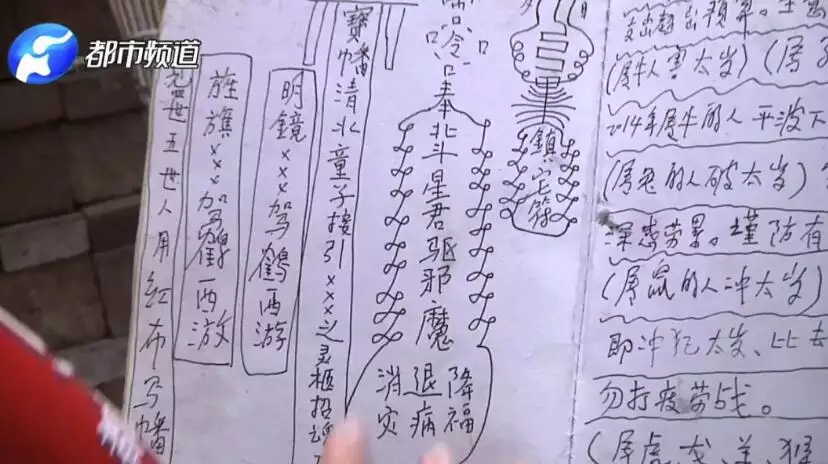 都市频道
世五世人用红布写幡
旌旗×××驾鶴西游
明鏡×××驾鶴西游
寶幡清北童子接引×××之灵柩招魂
奉北斗星君驱邪魔
消灾
退病
降福
鎮宅符
支出超出预算。
(属牛人害太岁)(属
2014年属牛的人平波下
(属兔的人破太岁)
深感劳累。谨防有
(属鼠的人冲太岁)
即冲犯太岁、比去
勿打疲劳战。
(属虎、龙、羊、猴